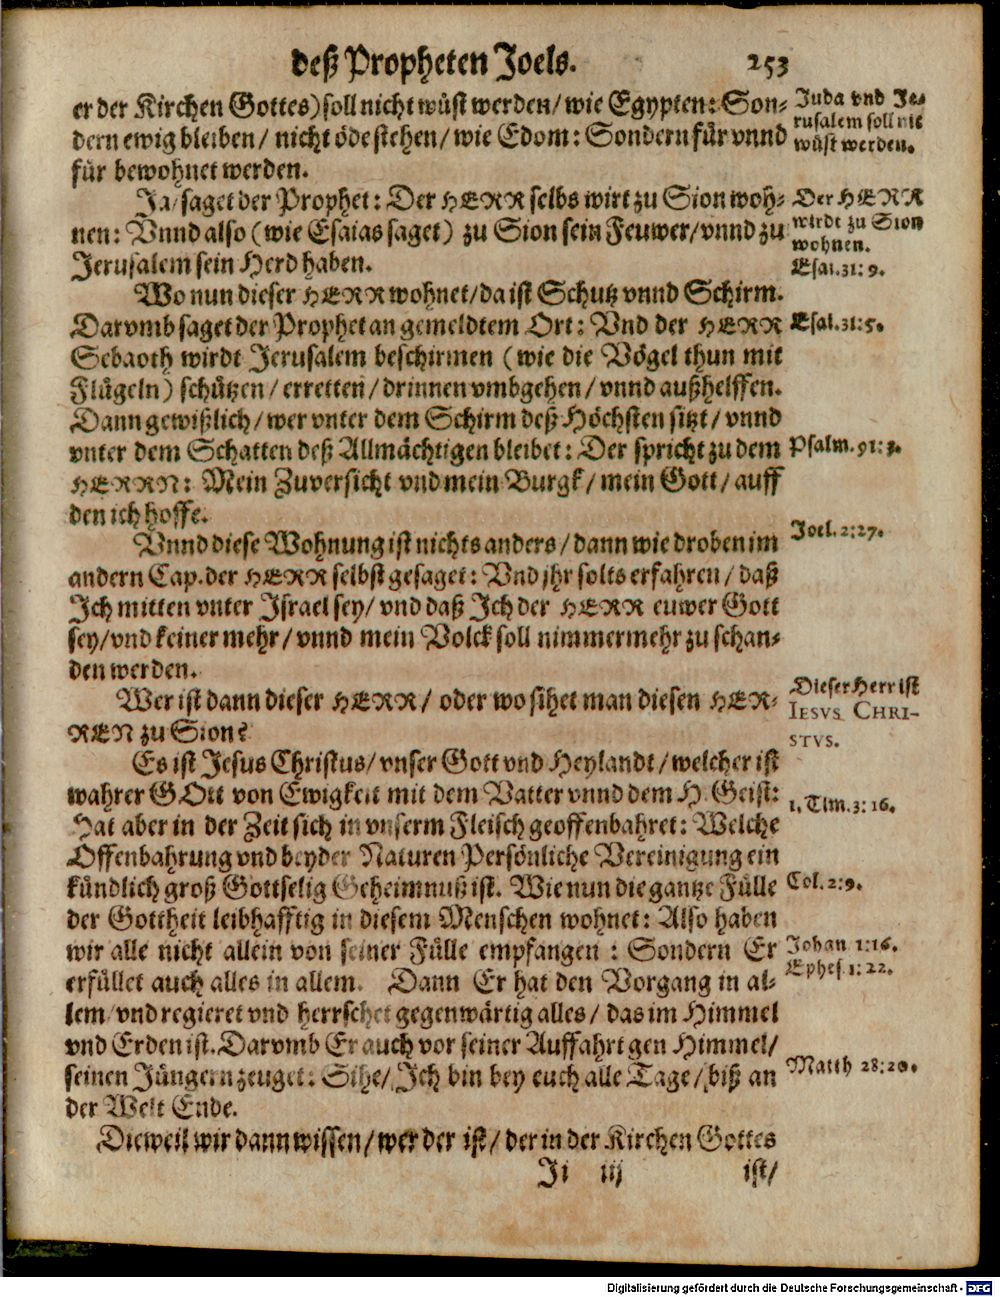 deß Propheten Joels. 253
er der Kirchen Gottes) soll nicht wüst werden/ wie Egypten: Son-
dern ewig bleiben/ nicht öde stehen/ wie Edom: Sondern für vnnd
für bewohnet werden.
Juda vnd Je-
rusalem soll nit
wüst werden.
Ja/ saget der Prophet: Der HERR selbs wirt zu Sion woh-
nen: Vnnd also (wie Esaias saget) zu Sion sein Feuwer/ vnnd zu
Jerusalem sein Herd haben.
Der HERR
wirdt zu Sion
wohnen.
Esai. 31: 9.
Wo nun dieser HERR wohnet/ da ist Schutz vnnd Schirm.
Darvmb saget der Prophet an gemeldtem Ort: Vnd der HERR
Sebaoth wirdt Jerusalem beschirmen (wie die Vögel thun mit
Flügeln) schützen/ erretten/ drinnen vmbgehen/ vnnd außhelffen.
Dann gewißlich/ wer vnter dem Schirm deß Höchsten sitzt/ vnnd
vnter dem Schatten deß Allmächtigen bleibet: Der spricht zu dem
HERRN: Mein Zuversicht vnd mein Burgk/ mein Gott/ auff
den ich hoffe.
Esai. 31: 5.
Psalm. 91:
Vnnd diese Wohnung ist nichts anders/ dann wie droben im
andern Cap. der HERR selbst gesaget: Vnd jhr solts erfahren/ daß
Ich mitten vnter Israel sey/ vnd daß Ich der HERR euwer Gott
sey/ vnd keiner mehr/ vnnd mein Volck soll nimmermehr zu schan-
den werden.
Joel. 2: 27.
Wer ist dann dieser HERR/ oder wo sihet man diesen HER-
REN zu Sion?
Dieser Herr ist
IESVS CHRI-
STVS.
Es ist Jesus Christus/ vnser Gott vnd Heylandt/ welcher ist
wahrer GOtt von Ewigkeit mit dem Vatter vnnd dem H. Geist:
Hat aber in der Zeit sich in vnserm Fleisch geoffenbahret: Welche
Offenbahrung vnd beyder Naturen Persönliche Vereinigung ein
kündlich groß Gottselig Geheimnuß ist. Wie nun die gantze Fülle
der Gottheit leibhafftig in diesem Menschen wohnet: Also haben
wir alle nicht allein von seiner Fülle empfangen: Sondern Er
erfüllet auch alles in allem. Dann Er hat den Vorgang in al-
lem/ vnd regieret vnd herrschet gegenwärtig alles/ das im Himmel
vnd Erden ist. Darvmb Er auch vor seiner Auffahrt gen Himmel/
seinen Jüngern zeuget: Sihe/ Ich bin bey euch alle Tage/ biß an
der Welt Ende.
1. Tim. 3: 16.
Col. 2: 9.
Johan 1: 16.
Ephes. 1: 22.
Matth 28: 20.
Dieweil wir dann wissen/ wer der ist/ der in der Kirchen Gottes
Ji iij ist/
Digitalisierung gefördert durch die Deutsche Forschungsgemeinschaft - DFG